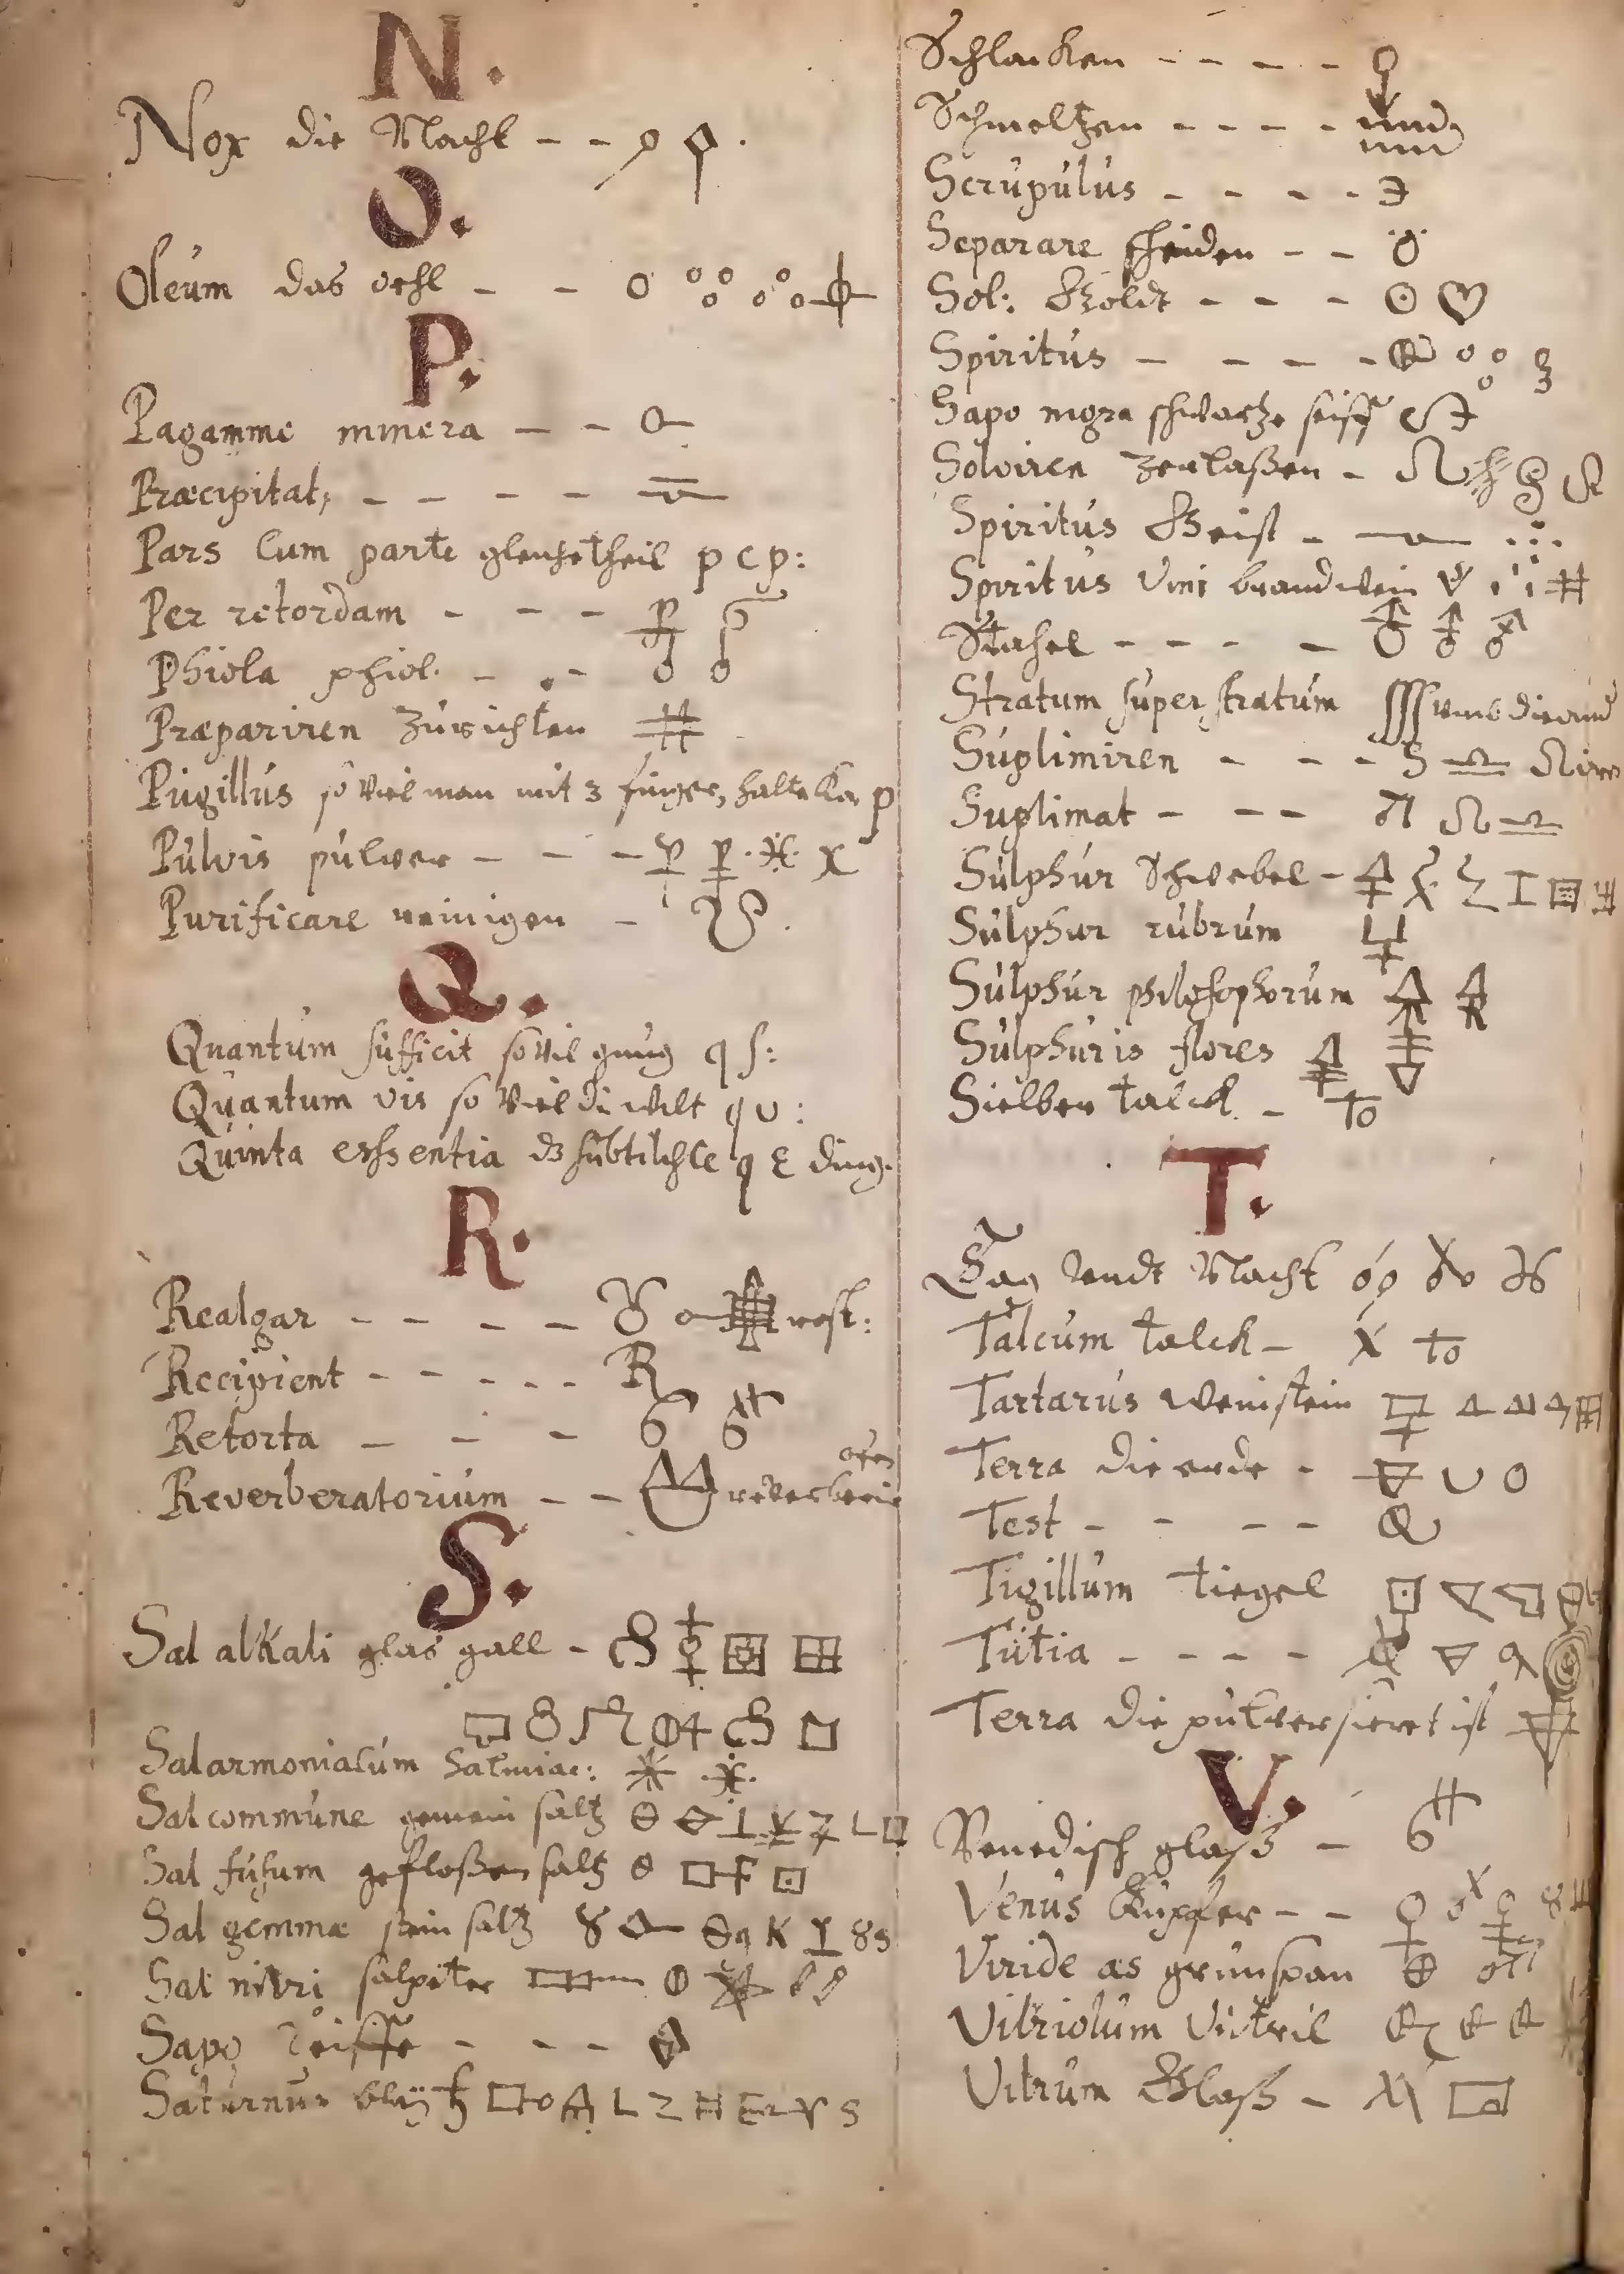 N.
Nox die Nacht
O.
Oleum das oehl
P.
Pagamme minera
Præcipitat,
Pars Cum parte gleiche theil p c p:
Per retordam
Phiola phiol.
Præpariren Zurichten
Pugillus so viel man mit 3 finger, halten kan p
Pulvis pulver
Purificare reinigen
Q.
Quantum sufficit so vil gnug q s:
Quantum vis so viel du wilt q v:
Quinta essentia dz subtilste q E ding.
R.
Realgar rost:
Recipient
Retorta
ofen
Reverberatorium reverberir
S.
Sal alkali glas gall
Sal armoniacum Salmiac:
Sal commune gemein saltz
Sal fusum gefloßen saltz
Sal gemmæ stein saltz
Sal nitri salpeter
Sapo Seiffe
Saturnus bley
Schlacken
Schmeltzen
Scrupulus
Separare scheiden
Sol: Goldt
Spiritus
Sapo nigra schwartze seiff
Solviren Zerlaßen
Spiritus Geist
Spiritus Vini brandwein
Stahel
Stratum super stratum
Suplimiren
Suplimat
Sulphur Schwebel
Sulphur rubrum
Sulphur philosophorum
Sulphuris flores
Sielber talck
T.
Tag Undt Nacht
Talcum talck
Tartarus Weinstein
Terra die erde
Test
Tigillum tiegel
Tutia
Terra die pulversieret ist
V.
Venedisch glaß
Venus Kupffer
Viride æs grunspan
Vitriolum Victril
Vitrum Glaß